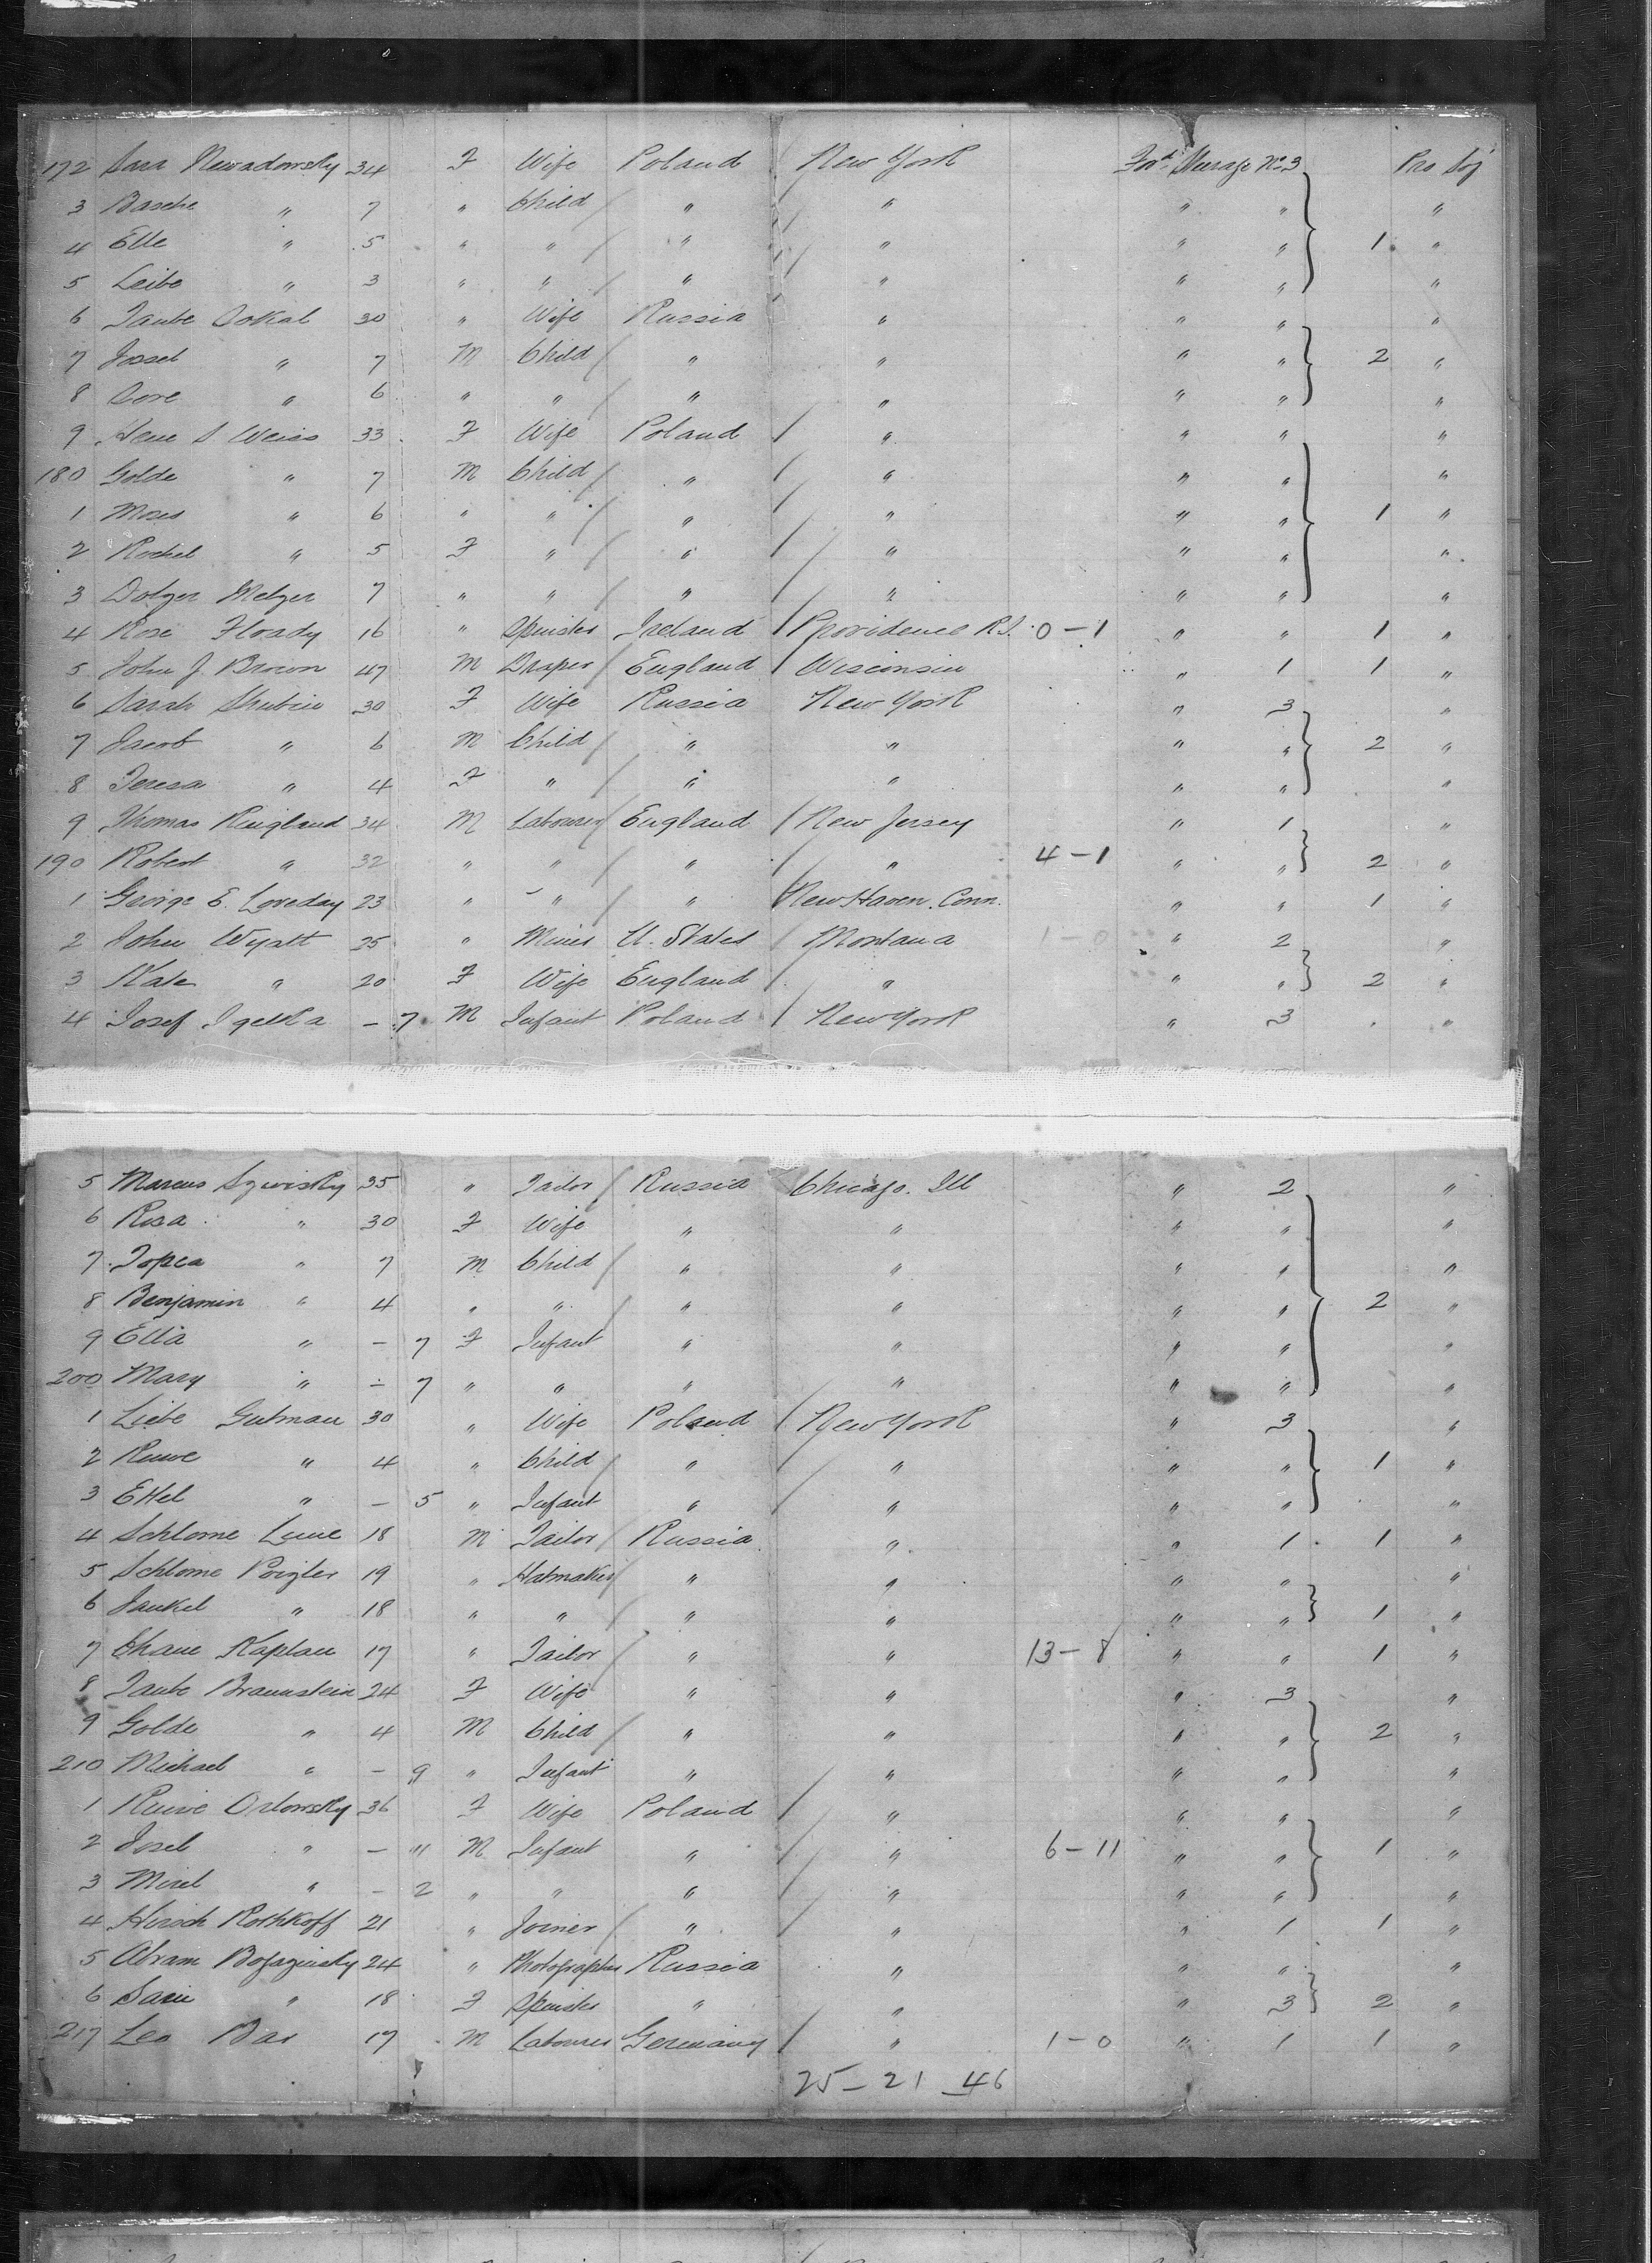 172 Sara Newadowsky 34 F Wife Poland New York For'd Steerage No 3 Pro Soj
3 Basche " 7 " Child " " " " "
4 Elle " 5 " " " " " " 1 "
5 Leibe " 3 " " " " " " "
6 Taube Sokal 30 " Wife Russia " " " "
7 Jossel " 7 M Child " " " " 2 "
8 Sore " 6 " " " " " " "
9 Hene S Weiss 33 F Wife Poland " " " "
180 Golde " 7 M Child " " " " "
1 Moses " 6 " " " " " " 1 "
2 Rochel " 5 F " " " " " "
3 Dolzer Melzer 7 " " " " " " "
4 Rose Floady 16 " Spinster Ireland Providence R.I. 0-1 " " 1 "
5 John J. Brown 47 M Draper England Wisconsin " 1 1 "
6 Sarah Shubin 30 F Wife Russia New York " 3 "
7 Jacob " 6 M Child " " " " 2 "
8 Teresa " 4 F " " " " " "
9 Thomas Ringland 34 M Labourer England New Jersey " 1 "
190 Robert " 32 " " " " 4-1 " " 2 "
1 George E. Loveday 23 " " " New Haven. Conn. " " 1 "
2 John Wyatt 25 " Miner U. States Montana 1-0 " 2 "
3 Kate " 20 F Wife England " " " 2 "
4 Josef Igelka - 7 M Infant Poland New York " 3 "
5 Marcus Szwisky 35 " Tailor Russia Chicago. Ill " 2 "
6 Rosa " 30 F Wife " " " " "
7 Topea " 7 M Child " " " " "
8 Benjamin " 4 " " " " " " 2 "
9 Ella " - 7 F Infant " " " " "
200 Mary " - 7 " " " " " " "
1 Liebe Gutman 30 " Wife Poland New York " 3 "
2 Ruwe " 4 " Child " " " " 1 "
3 Ettel " - 5 " Infant " " " " "
4 Schlome Lune 18 M Tailor Russia " " 1 1 "
5 Schlome Poizler 19 " Hatmaker " " " " "
6 Jankel " 18 " " " " " " 1 "
7 Chane Kaplan 17 " Tailor " " 13-8 " " 1 "
8 Taube Braunstein 24 F Wife " " " 3 "
9 Golde " 4 M Child " " " " 2 "
210 Michael " - 9 " Infant " " " " "
1 Ruwe Orlowsky 36 F Wife Poland " " " "
2 Josel " - 11 M Infant " " 6-11 " " 1 "
3 Mirel " - 2 " " " " " " "
4 Hirsch Rothkoff 21 " Joiner " " " 1 1 "
5 Abram Bojaginsky 24 " Photographer Russia " " " "
6 Sarie " 18 F Spinster " " " 3 2 "
217 Leo Bar 17 M Labourer Germany " 1-0 " 1 1 "
25-21 46